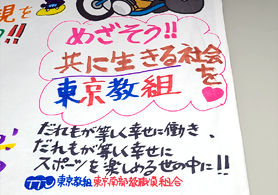 親を
!!
めざそう!!
共に生きる社会を
東京教組
だれもが等しく幸せに働き、
だれもが等しく幸せに
スポーツを楽しめる世の中に!!
東京教組 東京南部教職員組合